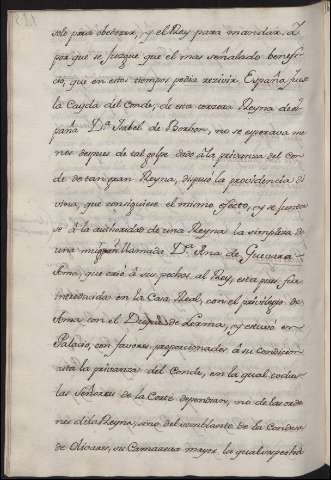 solo para obedecer, y el Rey para mandar. Y
por que se juzgue que el mas señalado benefi-
cio, que en estos tiempos podia recivir España fuese
la Cayda del Conde, de esta Reyna de Es-
paña Dª Isabel de Borbon, no se esperava me
nos despues de tal golpe dado â la privanza del Con
de de tan gran Reyna, dispuso la providencia di
vina, que consiguiese el mismo efecto, y se juntase
se â la authoridad de una Reyna la simpleza de
una muger llamada Dª Ana de Guevara
Ama, que criò â sus pechos al Rey, esta pues fue
introducida en la Casa Real, con el privilegio de
Ama con el Duque de Lerma, y estuvo en
Palacio, con favores proporcionados â su condicion
asta la privanza del Conde, en la qual todas
las Señoras de la Corte dependian, no de las orde
nes de la Reyna, sino del semblante de la Condesa
de Olivares, su Camarera mayor la qual